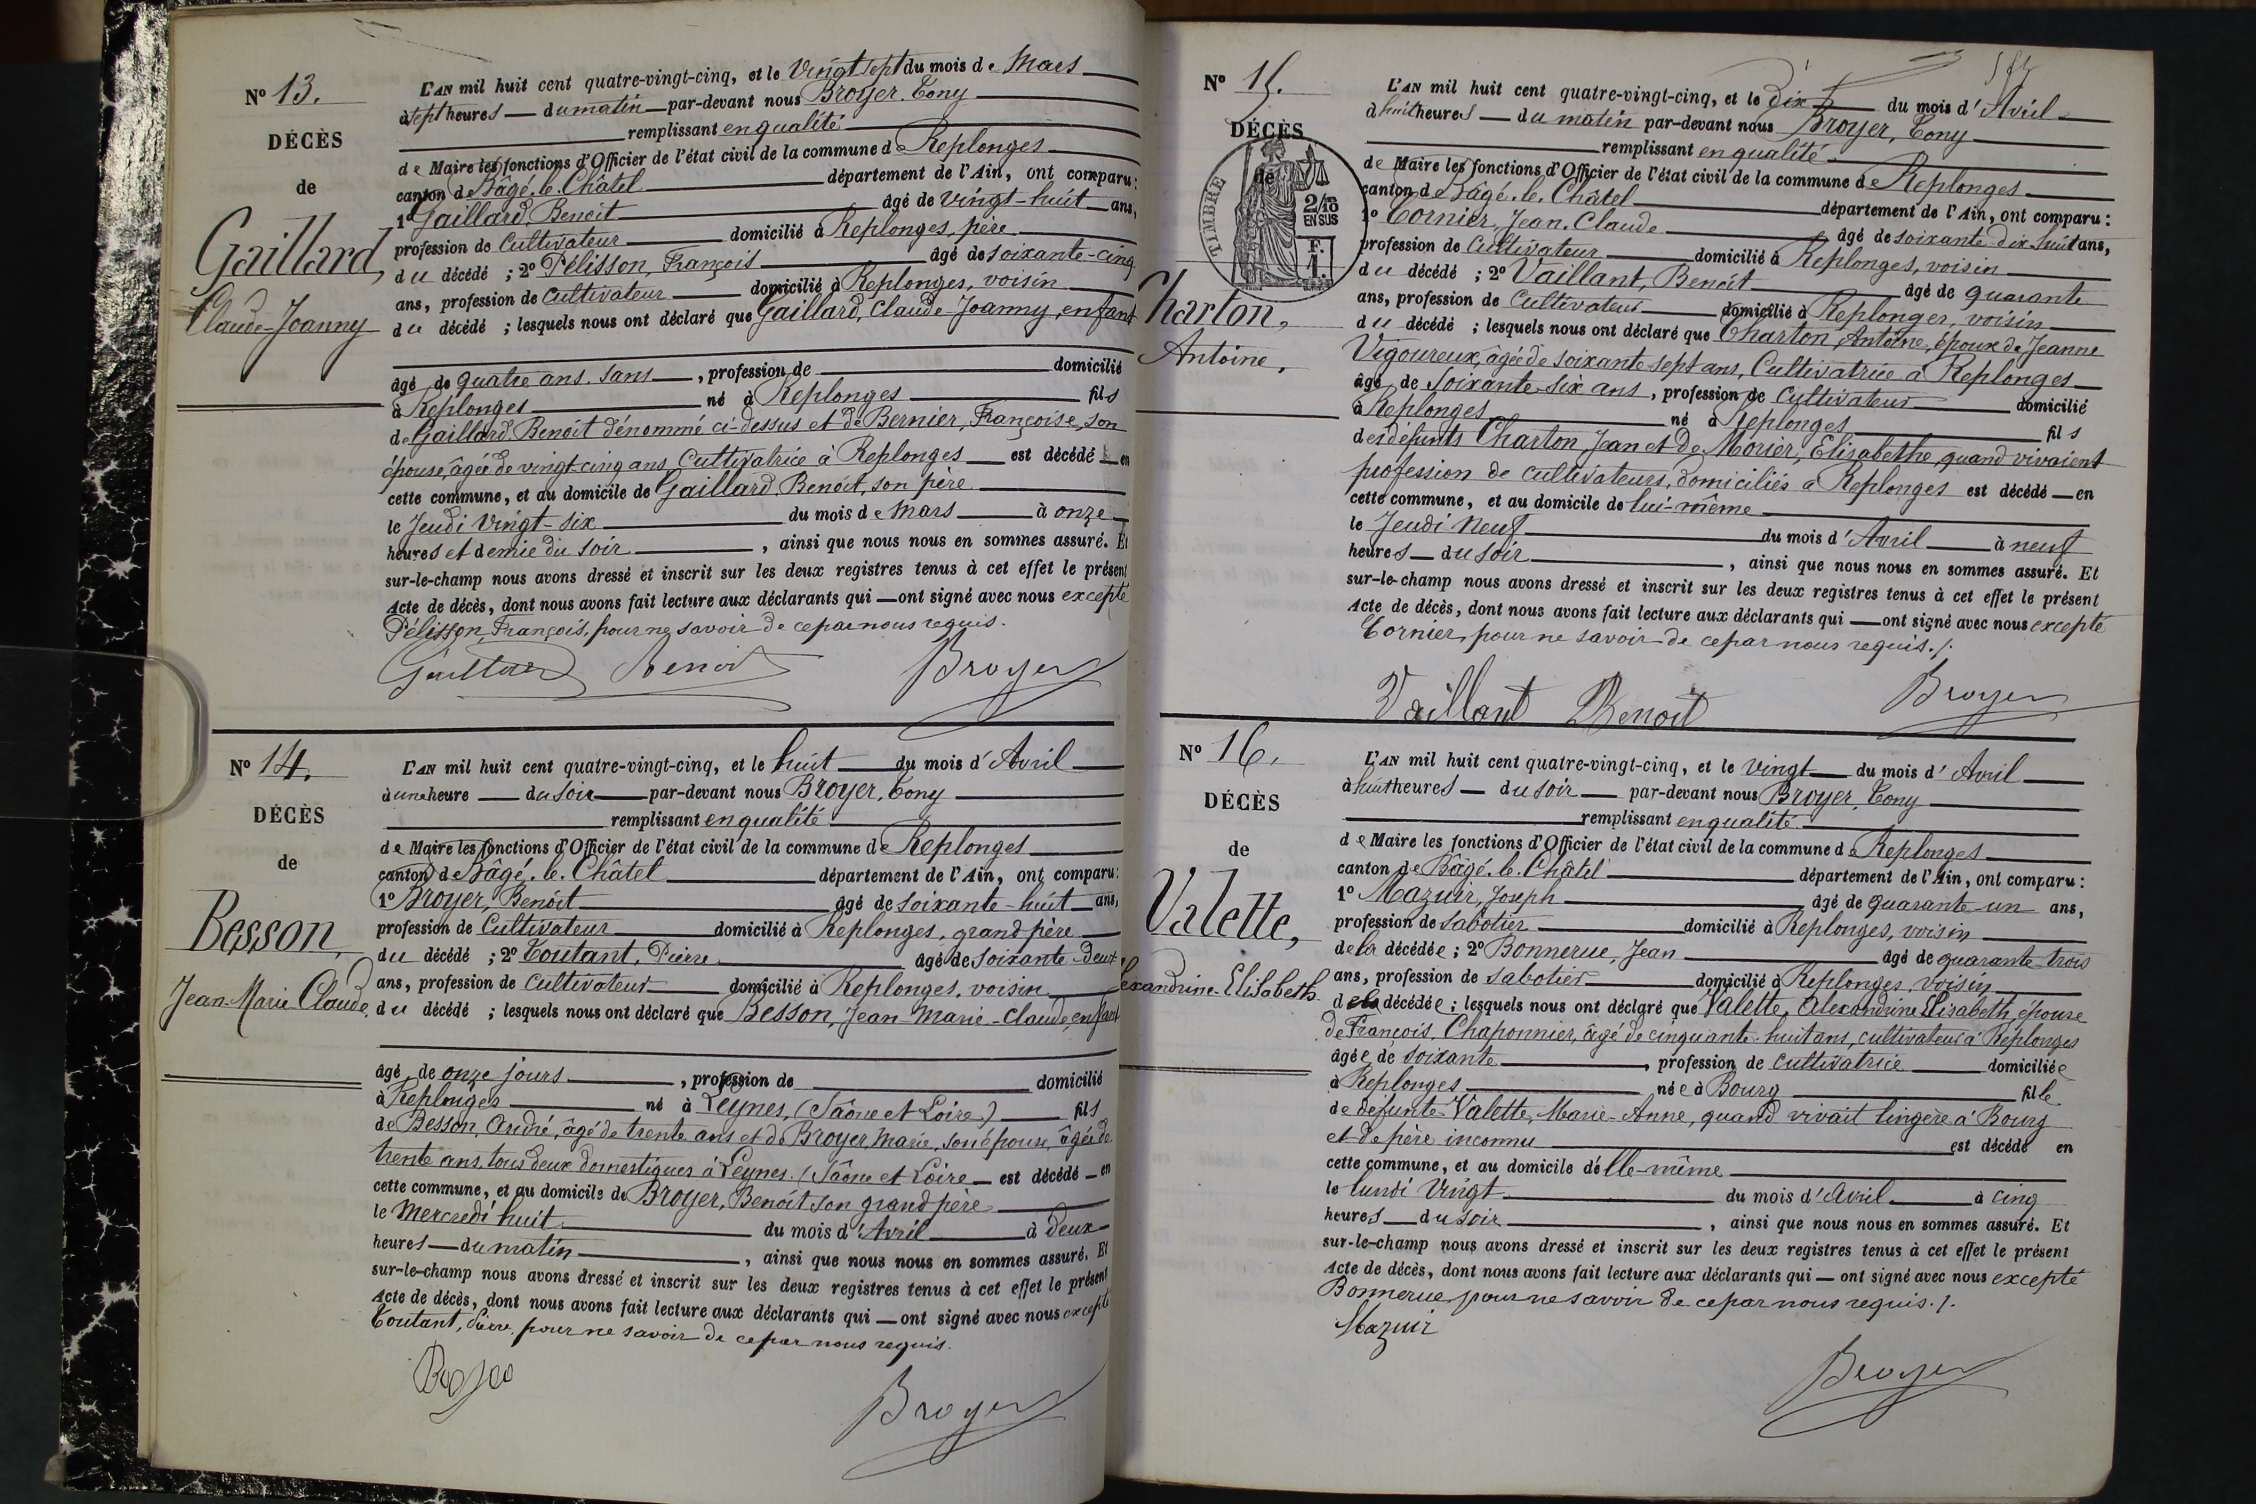 N° 13.
DÉCÈS
de
Gaillard,
Claude-Joanny
L'AN mil huit cent quatre-vingt-cinq, et le Vingt sept du mois de Mars
à sept heures du matin par-devant nous Broyer, Tony
remplissant en qualité
de Maire les fonctions d'Officier de l'état civil de la commune de Replonges
canton de Bâgé-le-Châtel département de l'Ain, ont comparu:
1° Gaillard, Benoît âgé de vingt-huit ans,
profession de Cultivateur domicilié à Replonges, père
du décédé ; 2° Pélisson, François âgé de soixante-cinq
ans, profession de cultivateur domicilié à Replonges, voisin
du décédé ; lesquels nous ont déclaré que Gaillard, Claude-Joanny, enfant
âgé de quatre ans, sans , profession de domicilié
à Replonges né à Replonges fils
de Gaillard, Benoît dénommé ci-dessus et de Bernier, Françoise, son
épouse, âgée de vingt cinq ans, Cultivatrice à Replonges est décédé en
cette commune, et au domicile de Gaillard, Benoît, son père
le Jeudi Vingt-six du mois de Mars à onze
heures et demie du soir , ainsi que nous nous en sommes assuré. Et
sur-le-champ nous avons dressé et inscrit sur les deux registres tenus à cet effet le présent
Acte de décès, dont nous avons fait lecture aux déclarants qui ont signé avec nous excepté
Pélisson, François, pour ne savoir de ce par nous requis.
Gaillard Benoit Broyer
N° 14.
DÉCÈS
de
Besson,
Jean-Marie Claude
L'AN mil huit cent quatre-vingt-cinq, et le huit du mois d'Avril
à une heure du soir par-devant nous Broyer, Tony
remplissant en qualité
de Maire les fonctions d'Officier de l'état civil de la commune de Replonges
canton de Bâgé-le-Châtel département de l'Ain, ont comparu:
1° Broyer, Benoît âgé de soixante-huit ans,
profession de Cultivateur domicilié à Replonges, grand père
du décédé ; 2° Toutant, Pierre âgé de soixante-deux
ans, profession de cultivateur domicilié à Replonges, voisin
du décédé ; lesquels nous ont déclaré que Besson, Jean-Marie-Claude, enfant
âgé de onze jours , profession de domicilié
à Replonges né à Leynes, (Saône et Loire) fils
de Besson, André, âgé de trente ans et de Broyer, Marie, son épouse, âgée de
trente ans, tous deux domestiques à Leynes, (Saône et Loire est décédé en
cette commune, et au domicile de Broyer, Benoît son grand père
le Mercredi huit du mois d'Avril à deux
heures du matin , ainsi que nous nous en sommes assuré. Et
sur-le-champ nous avons dressé et inscrit sur les deux registres tenus à cet effet le présent
Acte de décès, dont nous avons fait lecture aux déclarants qui ont signé avec nous excepté
Toutant, Pierre, pour ne savoir de ce par nous requis.
Broyer
N° 15.
DÉCÈS
de
TIMBRE
2/10
EN SUS
F.
1.
Charton,
Antoine,
L'AN mil huit cent quatre-vingt-cinq, et le dix du mois d'Avril
à huit heures du matin par-devant nous Broyer, Tony
remplissant en qualité
de Maire les fonctions d'Officier de l'état civil de la commune de Replonges
canton de Bâgé-le-Châtel département de l'Ain, ont comparu:
1° Cornier, Jean-Claude âgé de soixante-dix-huit ans,
profession de Cultivateur domicilié à Replonges, voisin
du décédé ; 2° Vaillant, Benoît âgé de quarante
ans, profession de Cultivateur domicilié à Replonges, voisin
du décédé ; lesquels nous ont déclaré que Charton, Antoine, époux de Jeanne
Vigoureux, âgée de soixante sept ans, Cultivatrice à Replonges
âgé de Soixante-six ans , profession de Cultivateur domicilié
à Replonges né à Replonges fils
des défunts Charton Jean et de Morier, Elisabethe, quand vivaient
profession de cultivateurs, domiciliés à Replonges est décédé en
cette commune, et au domicile de lui-même
le Jeudi Neuf du mois d'Avril à neuf
heures du soir , ainsi que nous nous en sommes assuré. Et
sur-le-champ nous avons dressé et inscrit sur les deux registres tenus à cet effet le présent
Acte de décès, dont nous avons fait lecture aux déclarants qui ont signé avec nous excepté
Cornier, pour ne savoir de ce par nous requis./.
Vaillant Benoit Broyer
N° 16.
DÉCÈS
de
Valette,
lexandrine-Elisabeth
L'AN mil huit cent quatre-vingt-cinq, et le vingt du mois d'Avril
à huit heures du soir par-devant nous Broyer, Tony
remplissant en qualité
de Maire les fonctions d'Officier de l'état civil de la commune de Replonges
canton de Bâgé-le-Châtel département de l'Ain, ont comparu:
1° Mazuir, Joseph âgé de quarante un ans,
profession de sabotier domicilié à Replonges, voisin
de la décédée ; 2° Bonnerue, Jean âgé de quarante-trois
ans, profession de sabotier domicilié à Replonges, voisin
de la décédée ; lesquels nous ont déclaré que Valette, Alexandrine Elisabeth, épouse
de François, Chaponnier, âgé de cinquante-huit ans, cultivateur à Replonges
âgée de soixante , profession de cultivatrice domiciliée
à Replonges née à Bourg fille
de défunte Valette, Marie-Anne, quand vivait lingère à Bourg
et de père inconnu est décédé en
cette commune, et au domicile d'elle-même
le lundi Vingt du mois d'Avril à cinq
heures du soir , ainsi que nous nous en sommes assuré. Et
sur-le-champ nous avons dressé et inscrit sur les deux registres tenus à cet effet le présent
Acte de décès, dont nous avons fait lecture aux déclarants qui ont signé avec nous excepté
Bonnerue, pour ne savoir de ce par nous requis./.
Mazuir
Broyer